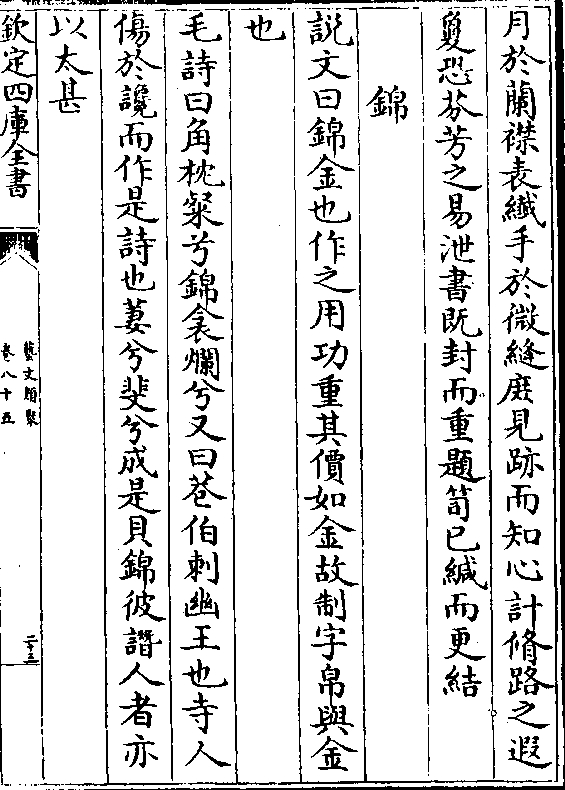 月於蘭襟表纖手於微縫庻見跡而知心計脩路之遐
敻恐芬芳之易泄書既封而重題笥已緘而更結
錦
説文曰錦金也作之用功重其價如金故制字帛與金
也
毛詩曰角枕粲兮錦衾爛兮又曰巷伯刺幽王也寺人
傷於讒而作是詩也萋兮斐兮成是貝錦彼譖人者亦
以太甚
欽定四庫全書
藝文類聚
卷八十五
二十三